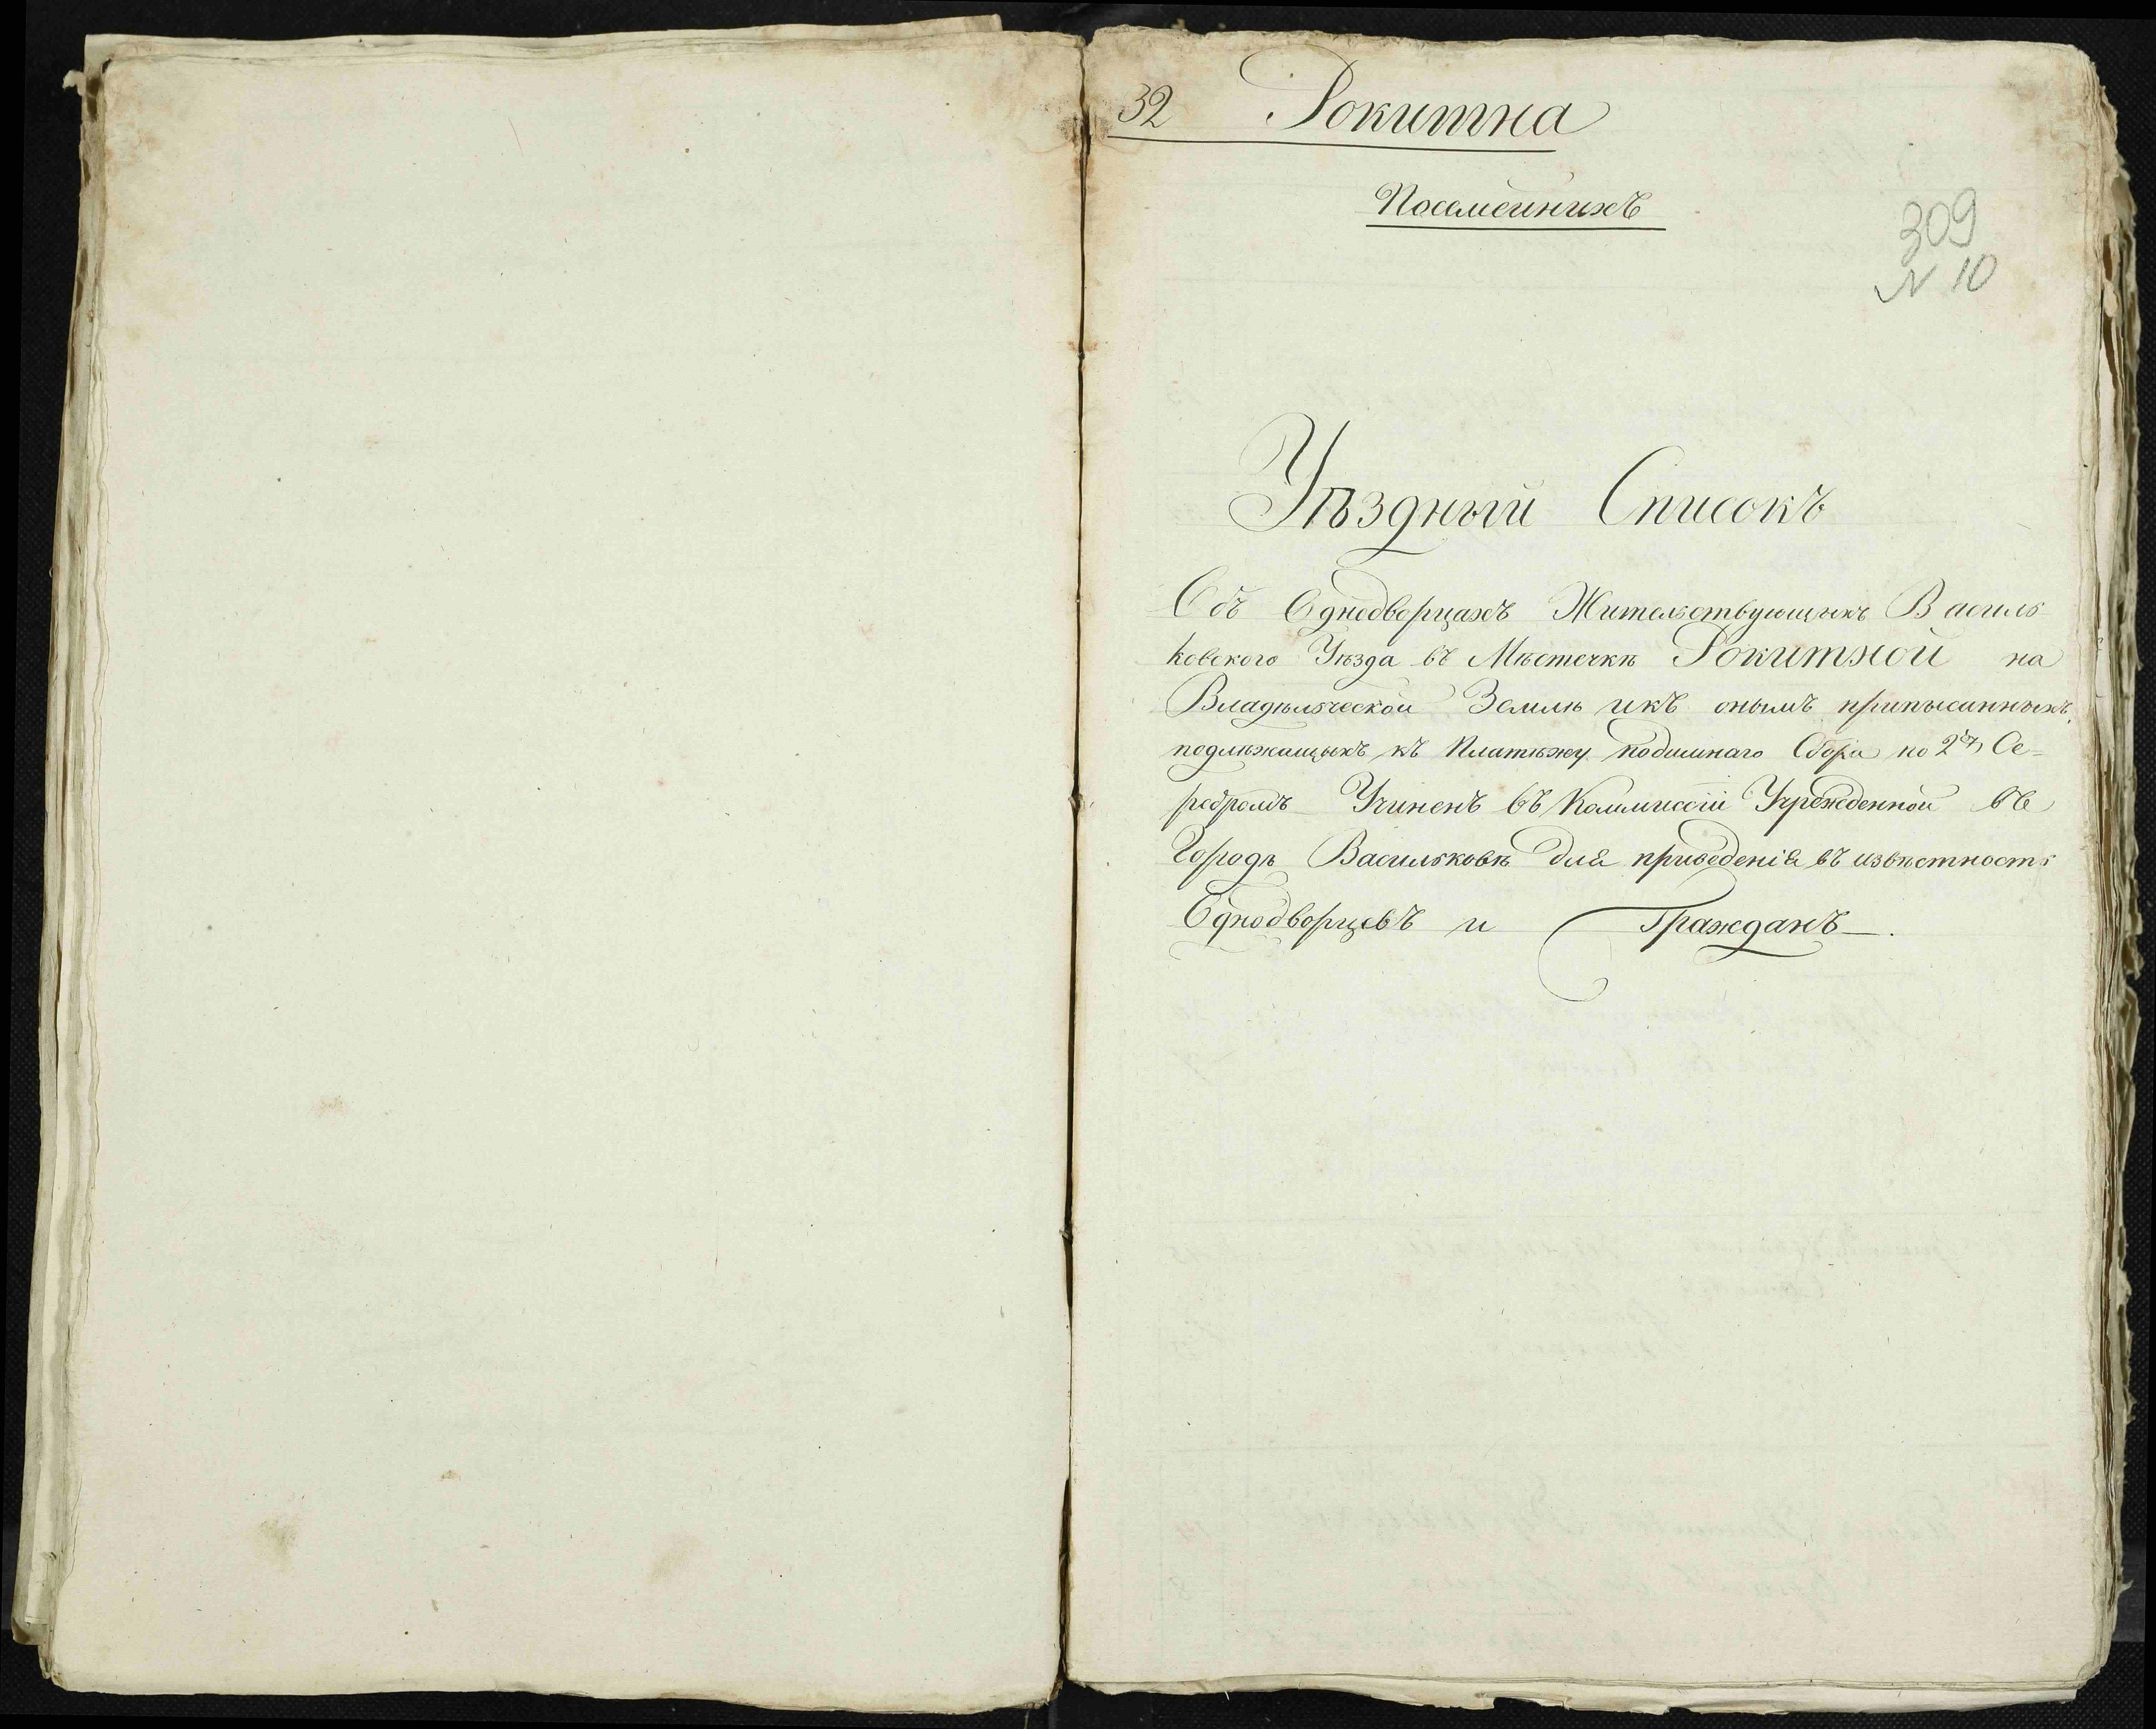 32 Рокитна
Посемейнихъ
309
N 10
Уѣздный Списокъ
Объ Однодворцахъ Жительствующихъ Василь
ковского Уѣзда въ Мѣстечкѣ Рокитной на
Владѣльческой Землѣ икъ онымъ приписанныхъ
подлѣжащыхъ къ Платѣжу подымнаго Сбора по 2 Се-
ребромъ Учиненъ въ Коммиссіи Учрежденной въ
Городѣ Васильковѣ для приведенія въ извѣстность
Однодворцевъ и Гражданъ.